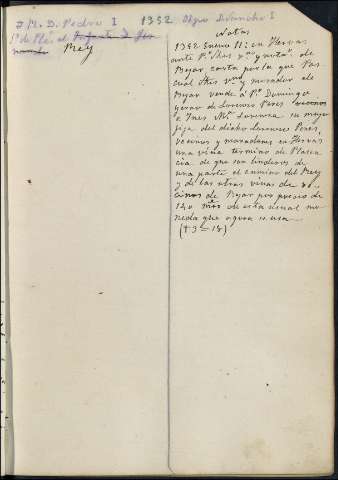 # R. D. Pedro I 1352 Obpo D. Sancho I
Sr. de Pla. el Infante D. Fer
nando Rey
Notas
1352 Enero 11: en Hervas
ante Po Ihes de
Bejar carta por la que Pas
cual Ihes vno y morador de
Bejar vende á Po Domingo
yerno de Lorenzo Peres vecinos
e Ines Ma Lorenza su mujer
fija del dicho Lorenzo Peres,
vecinos y moradores en Hervas
una viña termino de Plasen
cia de que son linderos de
una parte el camino del Rey
y de las otras viñas de ve
cinos de Bejar por precio de
140 mrs de esta usual mo
neda que agora se usa
(t 3 = 18)